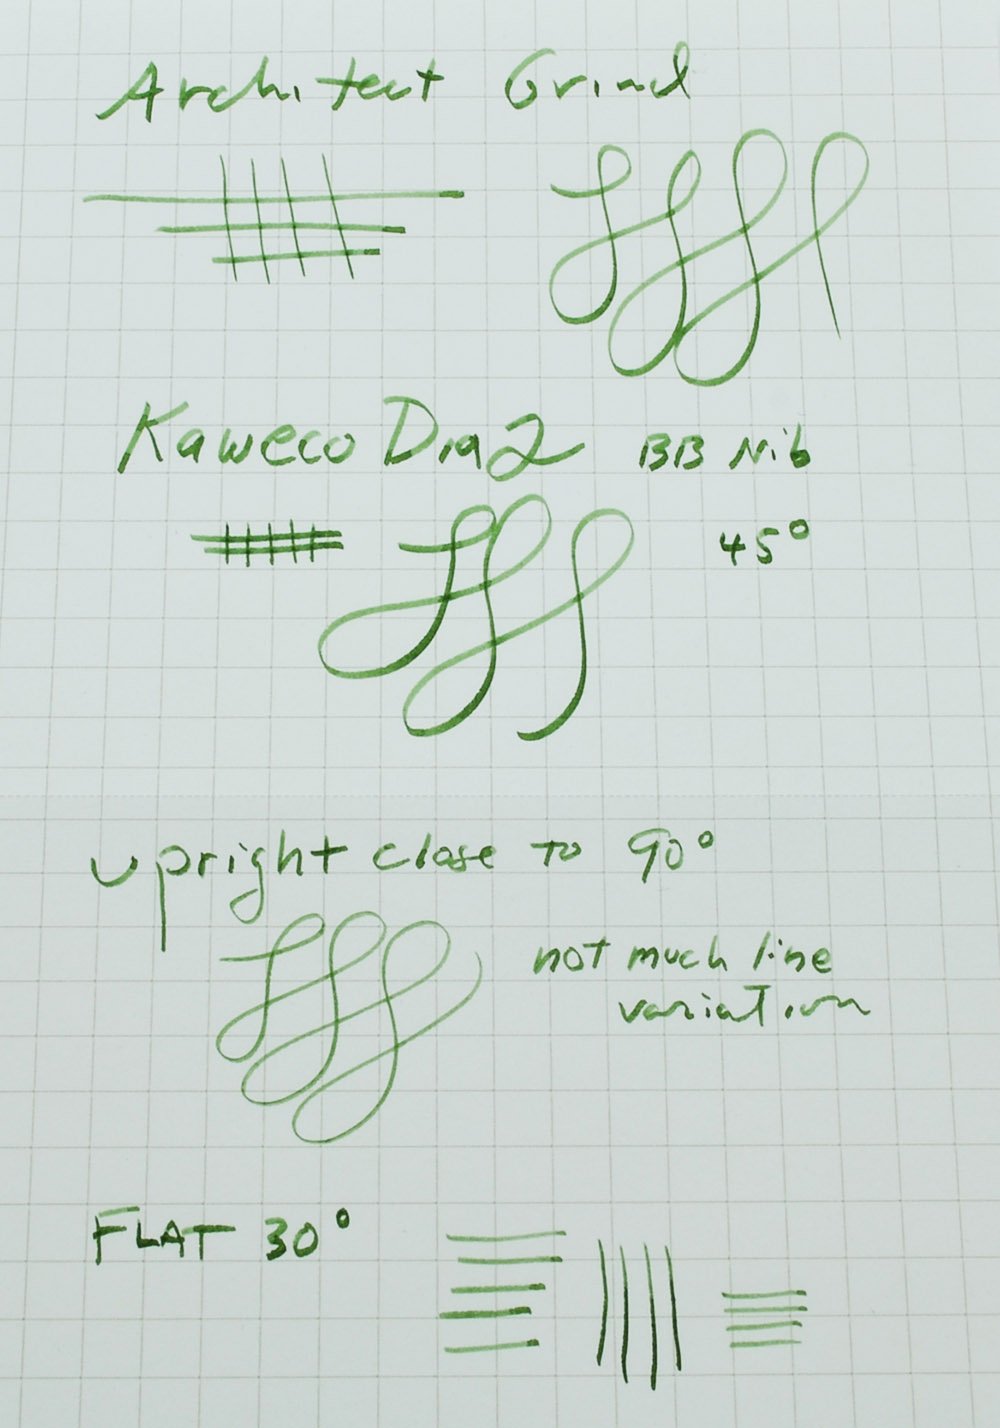 Architect Grind
Kaweco Dia2 BB Nib
45°
upright close to 90°
not much line
variation
FLAT 30°